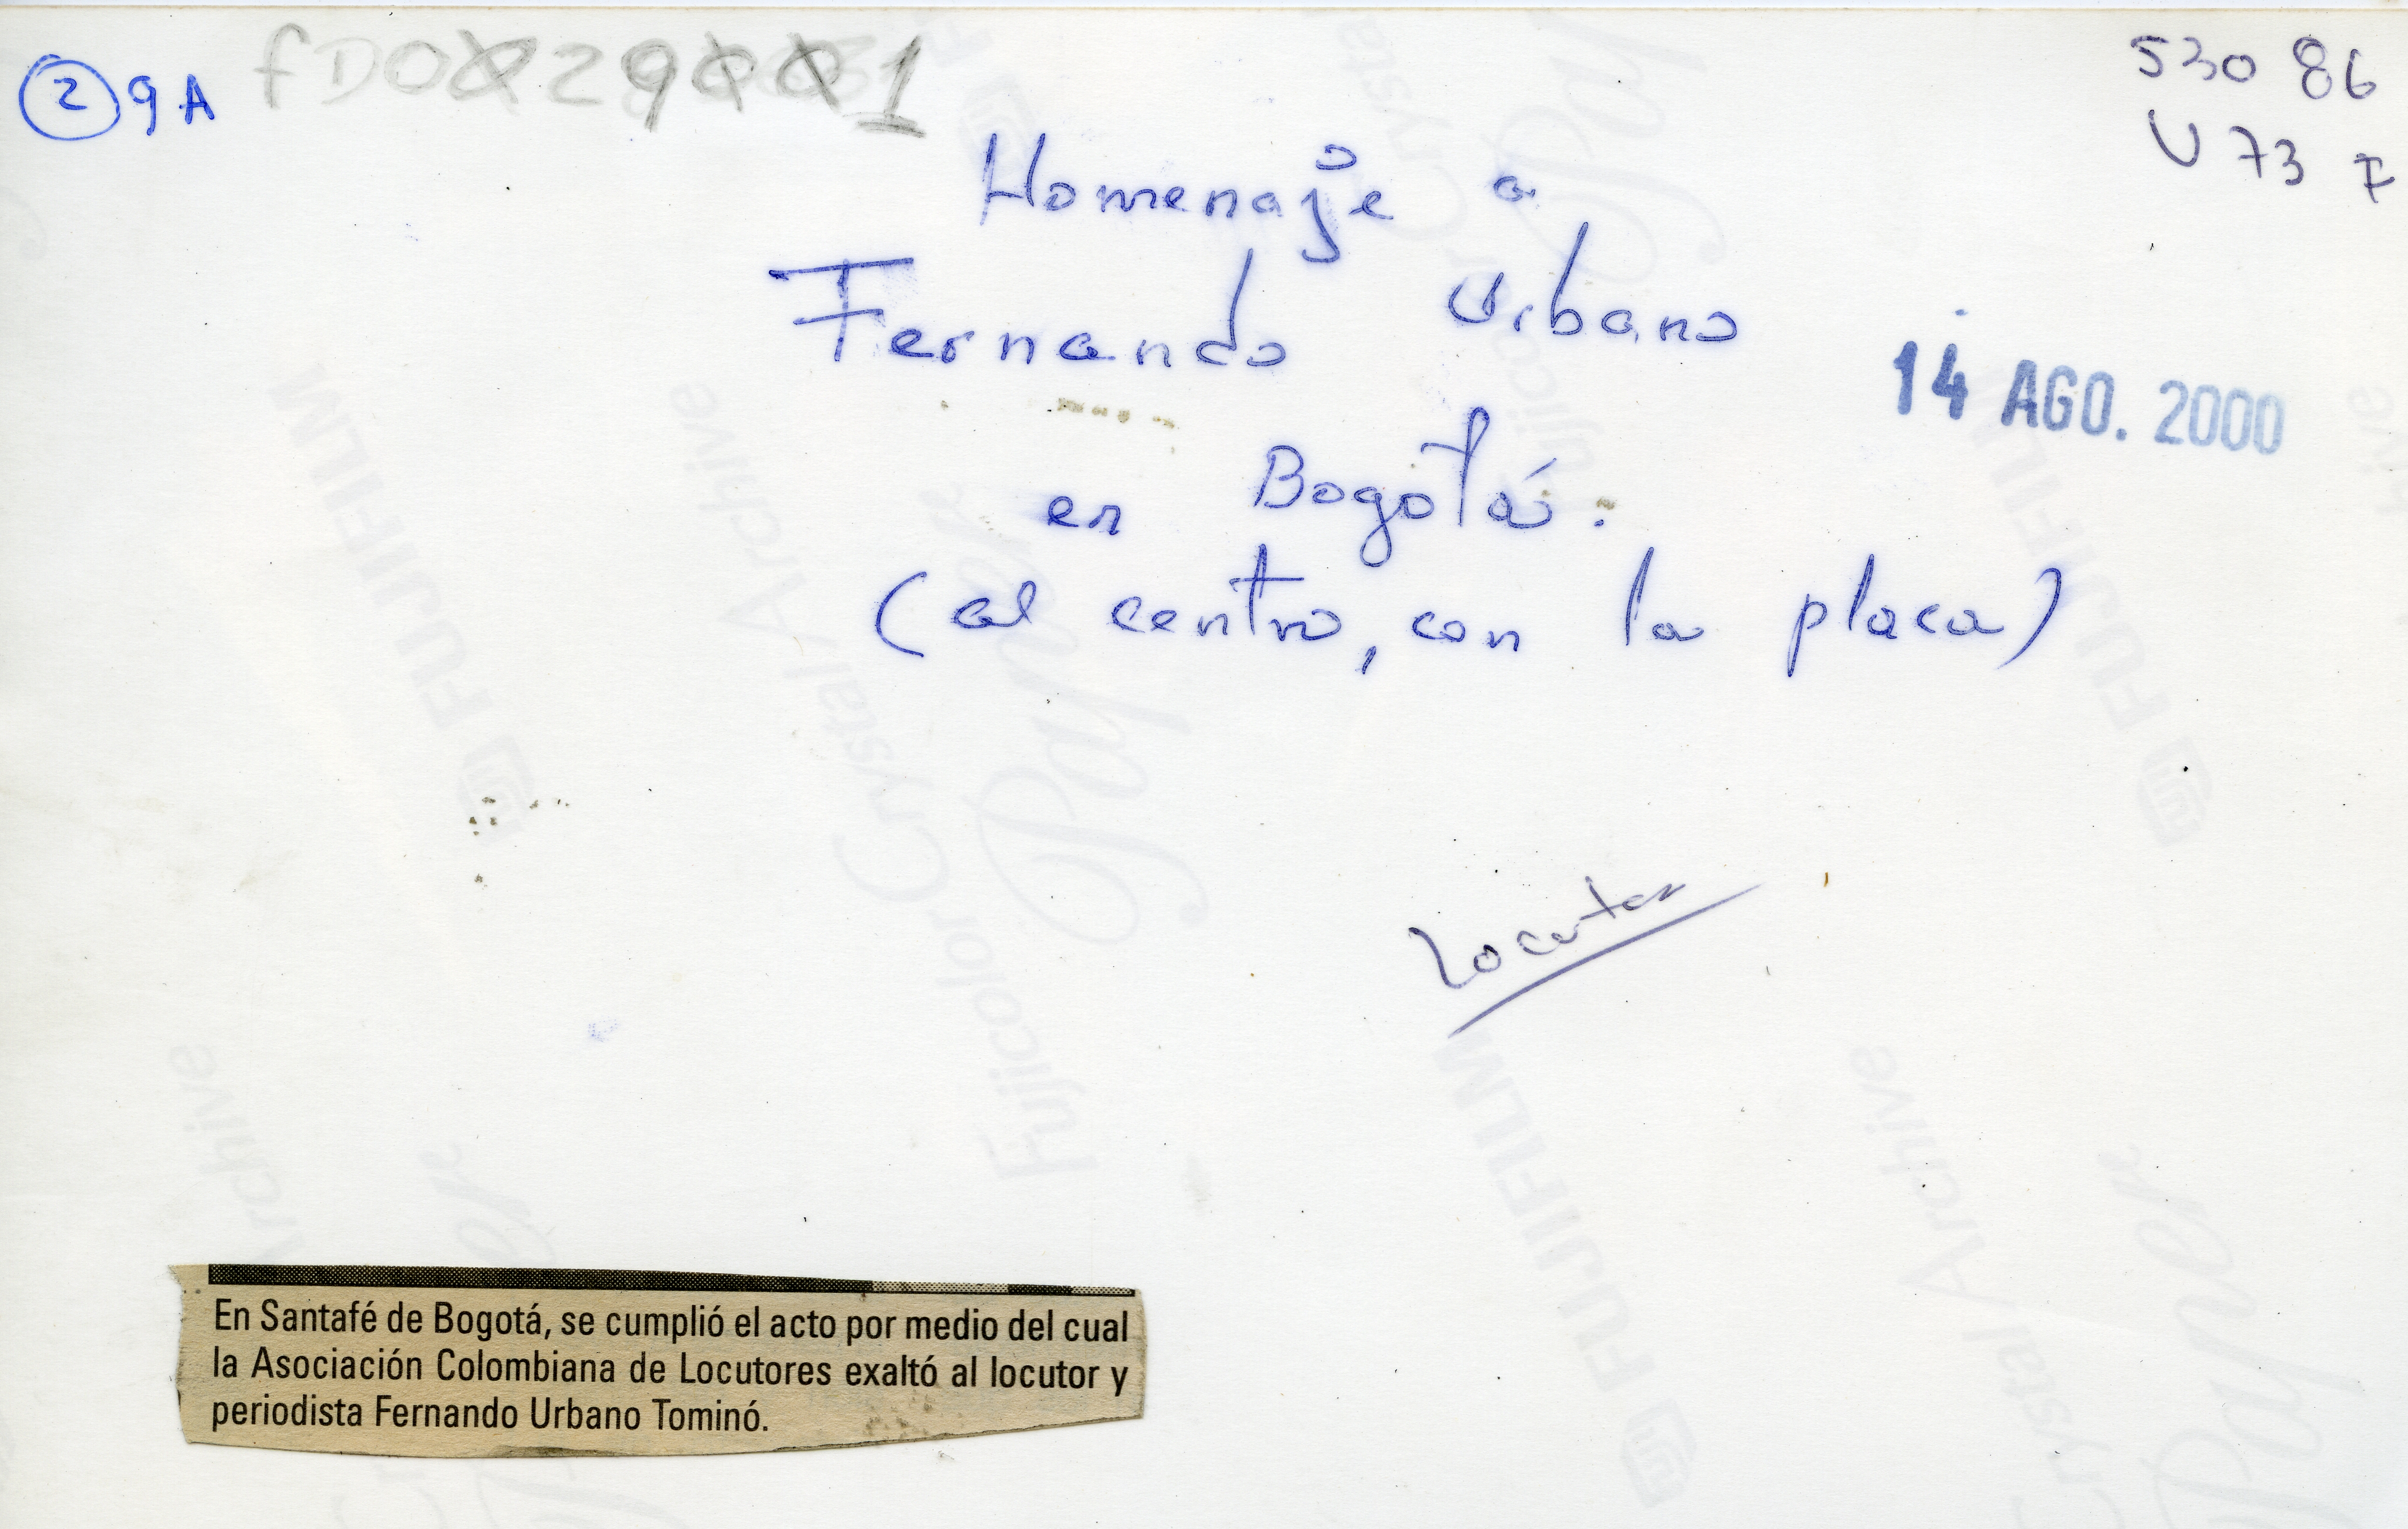 2 9A
53086
U73F
Homenaje a
Fernando Urbano
14 AGO. 2000
en Bogotá.
(al centro, con la placa)
Locutor
En Santafé de Bogotá, se cumplió el acto por medio del cual
la Asociación Colombiana de Locutores exaltó al locutor y
periodista Fernando Urbano Tominó.
FUJIFILM
Fujicolor Crystal Archive
Paper